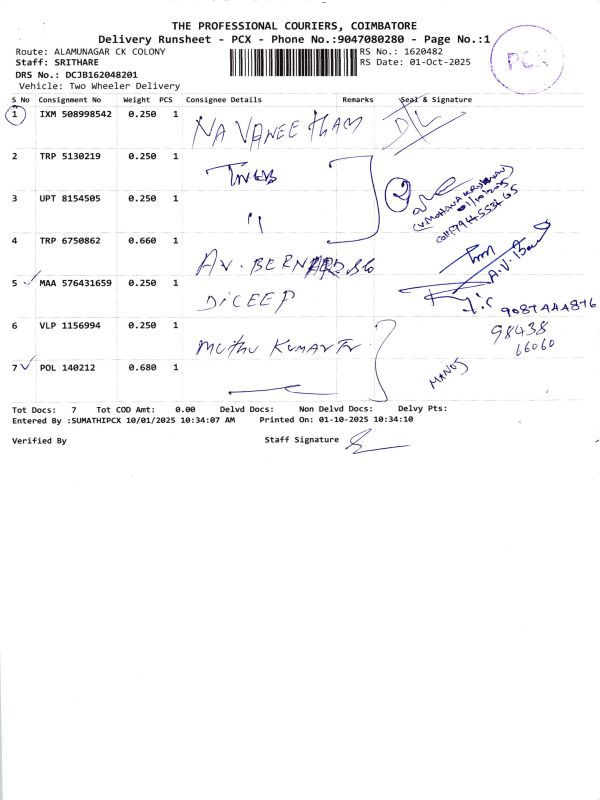 THE PROFESSIONAL COURIERS, COIMBATORE
Delivery Runsheet - PCX - Phone No.:9047080280 - Page No.:1
Route: ALAMUNAGAR CK COLONY
RS No.: 1620482
Staff: SRITHARE
RS Date: 01-Oct-2025
DRS No.: DCJB162048201
Vehicle: Two Wheeler Delivery
PCX
S No Consignment No Weight PCS Consignee Details Remarks Seal & Signature
1 IXM 508998542 0.250 1 NAVANEETHAM D/L
2 TRP 5130219 0.250 1 TNEB
3 UPT 8154505 0.250 1 "
2
01/10/2025
4 TRP 6750862 0.660 1 AV. BERNARD
A.V.
5 MAA 576431659 0.250 1 DICEEP
9087444876
6 VLP 1156994 0.250 1 MUTHU KUMAR
98438
66060
7 POL 140212 0.680 1
MANOJ
Tot Docs: 7 Tot COD Amt: 0.00 Delvd Docs: Non Delvd Docs: Delvy Pts:
Entered By :SUMATHIPCX 10/01/2025 10:34:07 AM Printed On: 01-10-2025 10:34:10
Verified By Staff Signature